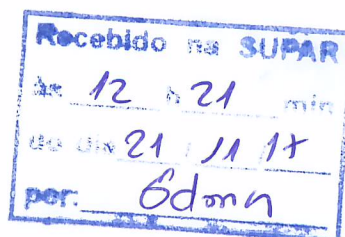 Recebido na SUPAR
às 12 h 21 min
do dia 21 / 11 / 17
por: Edona